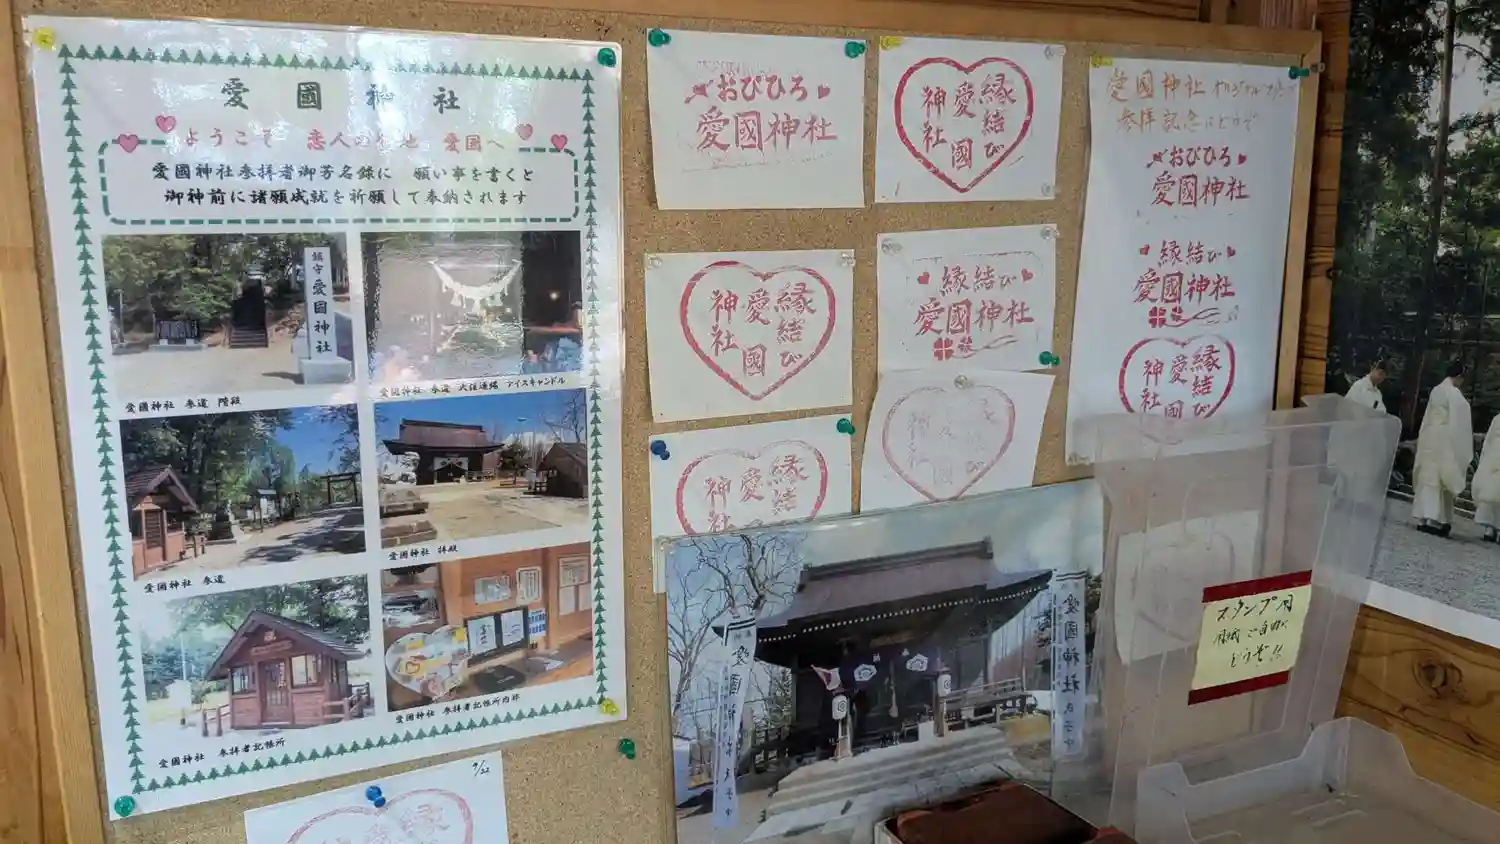 愛 國 神 社
ようこそ 恋人の聖地 愛国へ
愛國神社参拝者御芳名録に 願い事を書くと
御神前に諸願成就を祈願して奉納されます
鎮守 愛國神社
愛國神社 参道 階段
愛國神社 参道 大鳥居
愛國神社 参道
愛國神社 拝殿
愛國神社 参拝者記帳所
愛國神社 参拝者記帳所内部
おびひろ
愛國神社
縁結び
愛國
神社
縁結び
愛國
神社
縁結び
愛國神社
縁結
愛
神社
愛國神社 オリジナルスタンプ
参拝記念にどうぞ
おびひろ
愛國神社
縁結び
愛國神社
縁結び
愛國
神社
愛國神社
スタンプ用
用紙ご自由に
どうぞ!!
9/22